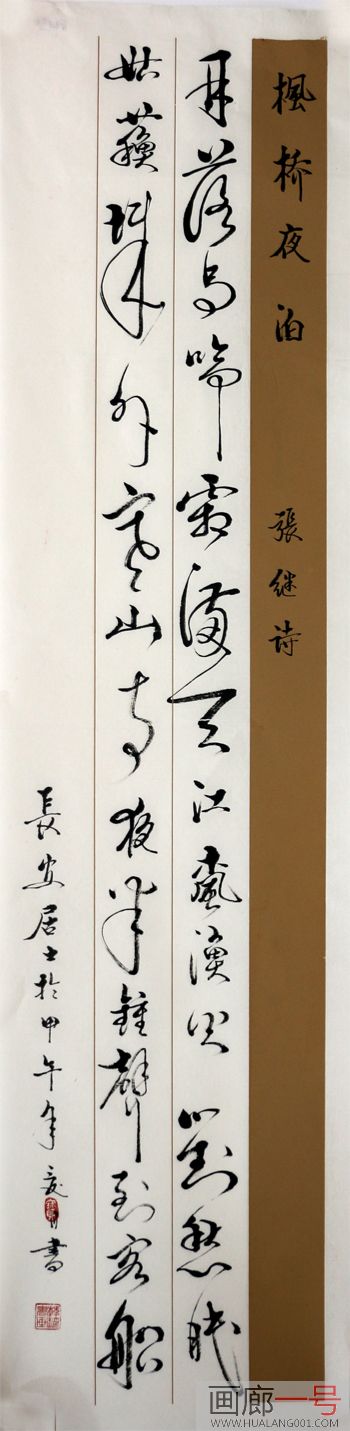 楓桥夜泊 張继诗
月落乌啼霜满天江楓渔火対愁眠
姑蘇城外寒山寺夜半鐘聲到客船
長安居士於甲午年夏月書
画廊一号
WWW.HUALANG001.COM